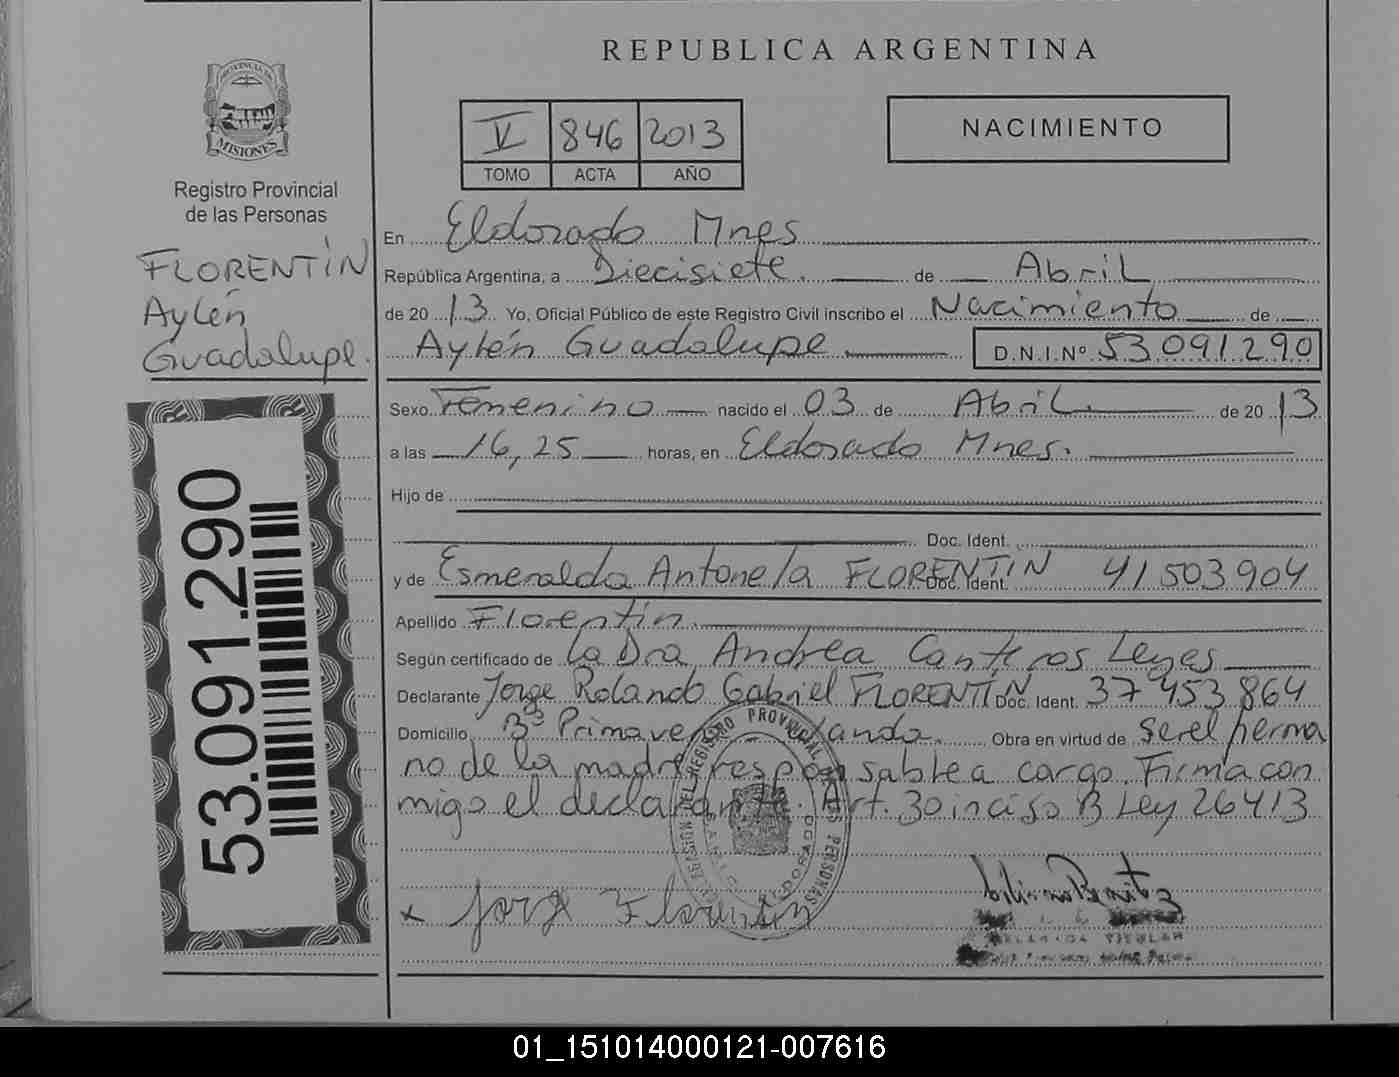 REPUBLICA ARGENTINA
PROVINCIA DE
MISIONES
Registro Provincial
de las Personas
V 846 2013
TOMO ACTA AÑO
NACIMIENTO
FLORENTÍN
Aylén
Guadalupe.
53.091.290
En Eldorado Mnes
República Argentina, a Diecisiete. de Abril
de 20 13 Yo, Oficial Público de este Registro Civil inscribo el Nacimiento de
Aylén Guadalupe D.N.I.Nº 53.091.290
Sexo Femenino nacido el 03 de Abril de 20 13
a las 16,25 horas, en Eldorado Mnes.
Hijo de
Doc. Ident.
y de Esmeralda Antonela FLORENTIN Doc. Ident. 41503904
Apellido Florentín.
Según certificado de La Dra Andrea Canteros Leyes
Declarante Jorge Rolando Gabriel FLORENTÍN Doc. Ident. 37 453 864
Domicilio Bº Primavera - Wanda. Obra en virtud de Ser el herma
no de la madre responsable a cargo. Firma con
migo el declarante. Art. 30 inciso B Ley 26413
x Jorge Florentin
REGISTRO PROVINCIAL DE LAS PERSONAS
ELDORADO
01_151014000121-007616